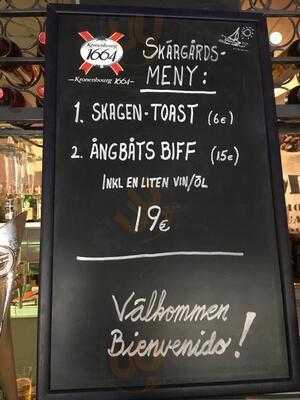 Kronenbourg
1664
Kronenbourg 1664
SKÄRGÅRDS-
MENY:
1. SKAGEN-TOAST (6€)
2. ÅNGBÅTS BIFF (15€)
INKL EN LITEN VIN/ÖL
19€
Välkommen
Bienvenido!